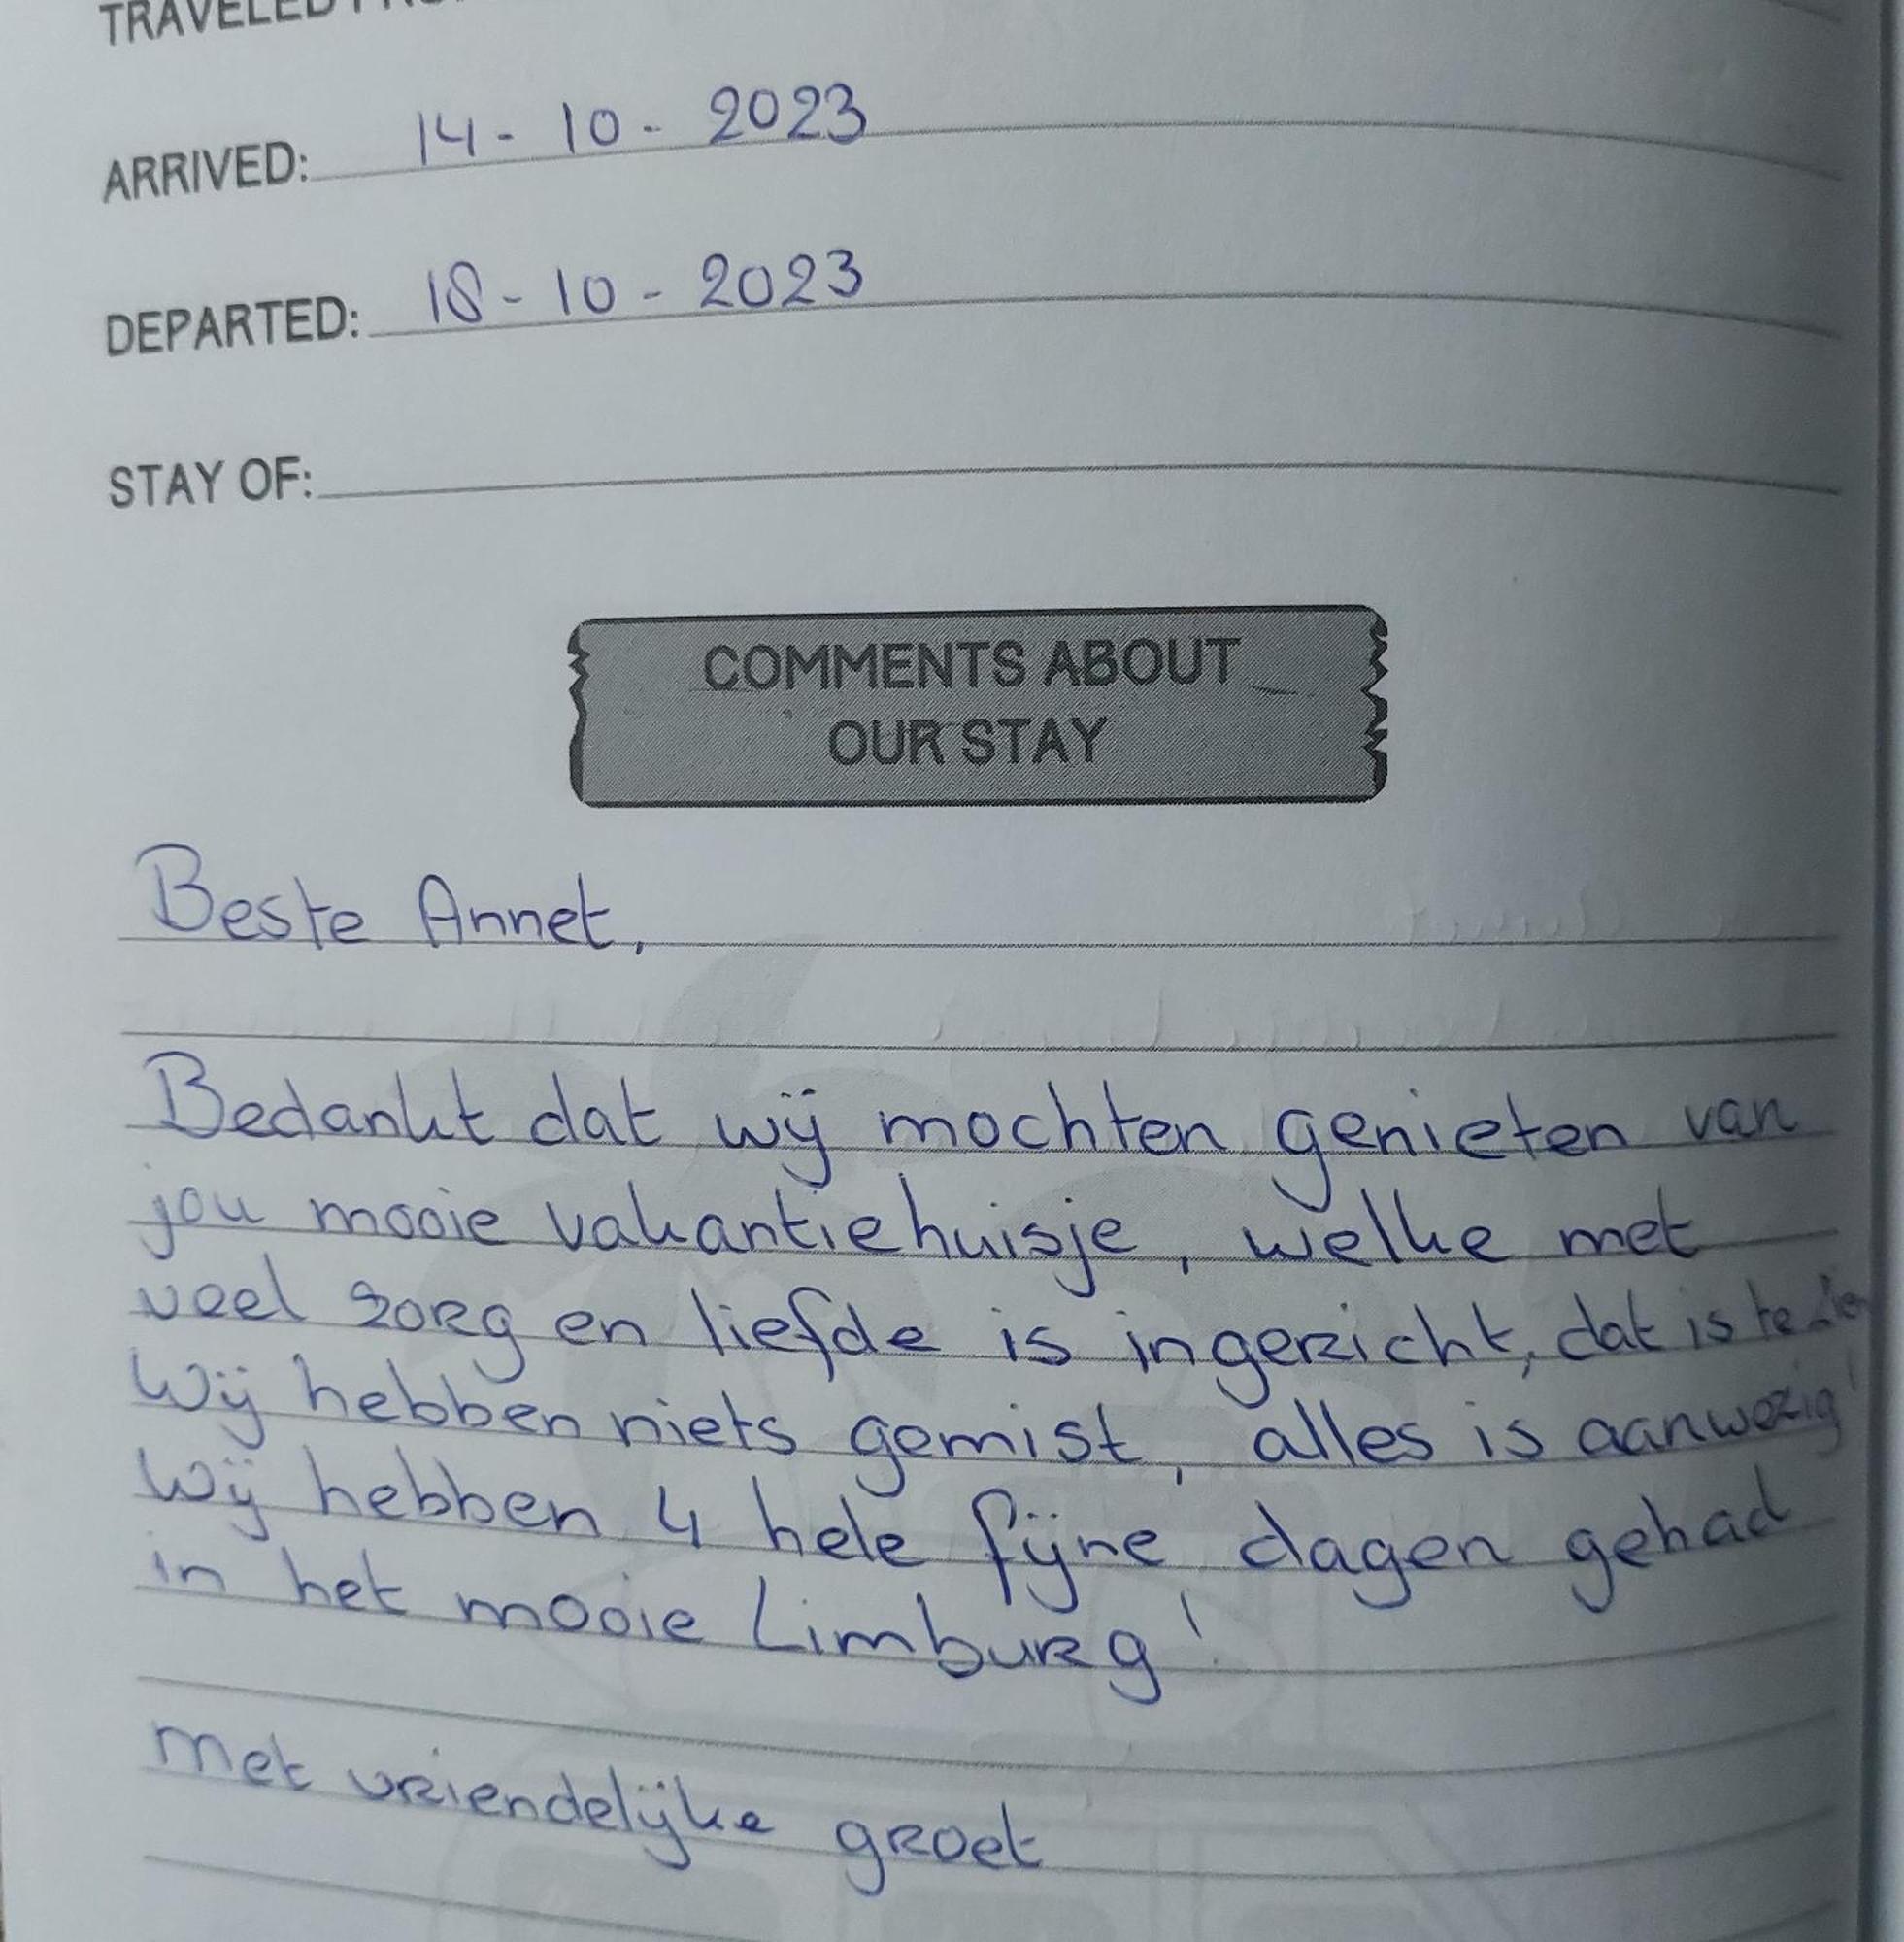 TRAVELED FRO
ARRIVED: 14-10-2023
DEPARTED: 18-10-2023
STAY OF:
COMMENTS ABOUT
OUR STAY
Beste Annet,
Bedankt dat wij mochten genieten van
jou mooie vakantiehuisje, welke met
veel zorg en liefde is ingericht, dat is te zien
Wij hebben niets gemist, alles is aanwezig!
Wij hebben 4 hele fijne dagen gehad
in het mooie Limburg!
met vriendelijke groet